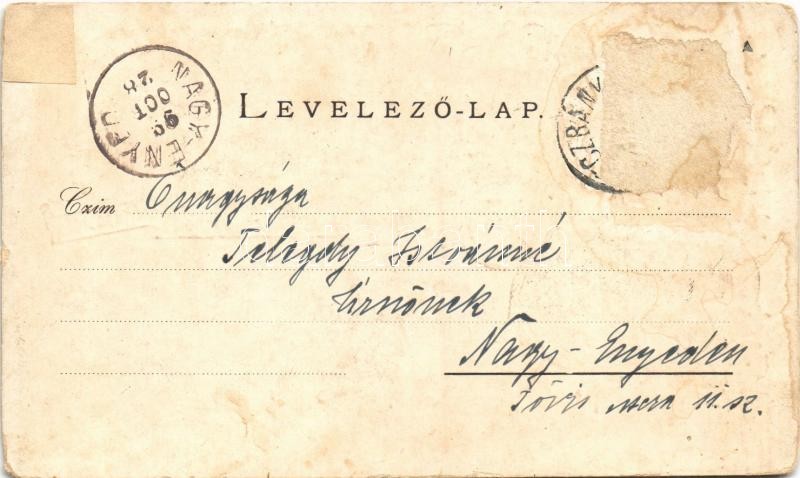 NAGY-ENYED
99 OCT 28
LEVELEZŐ-LAP.
CZBÁNY
Czim Őnagysága
Telegdy Istvánné
Úrnőnek
Nagy-Enyeden
11. sz.